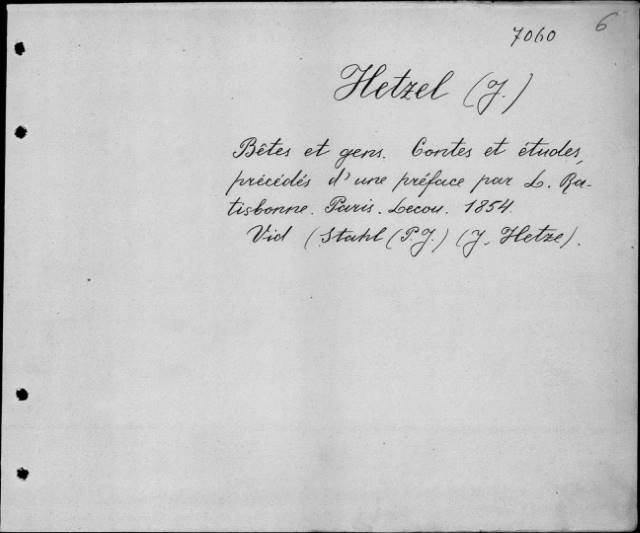 7060
6
Hetzel (J.)
Bêtes et gens. Contes et études,
précédés d'une préface par L. Ra-
tisbonne. Paris. Lecou. 1854.
Vid (Stahl (P.J.) (J. Hetze).